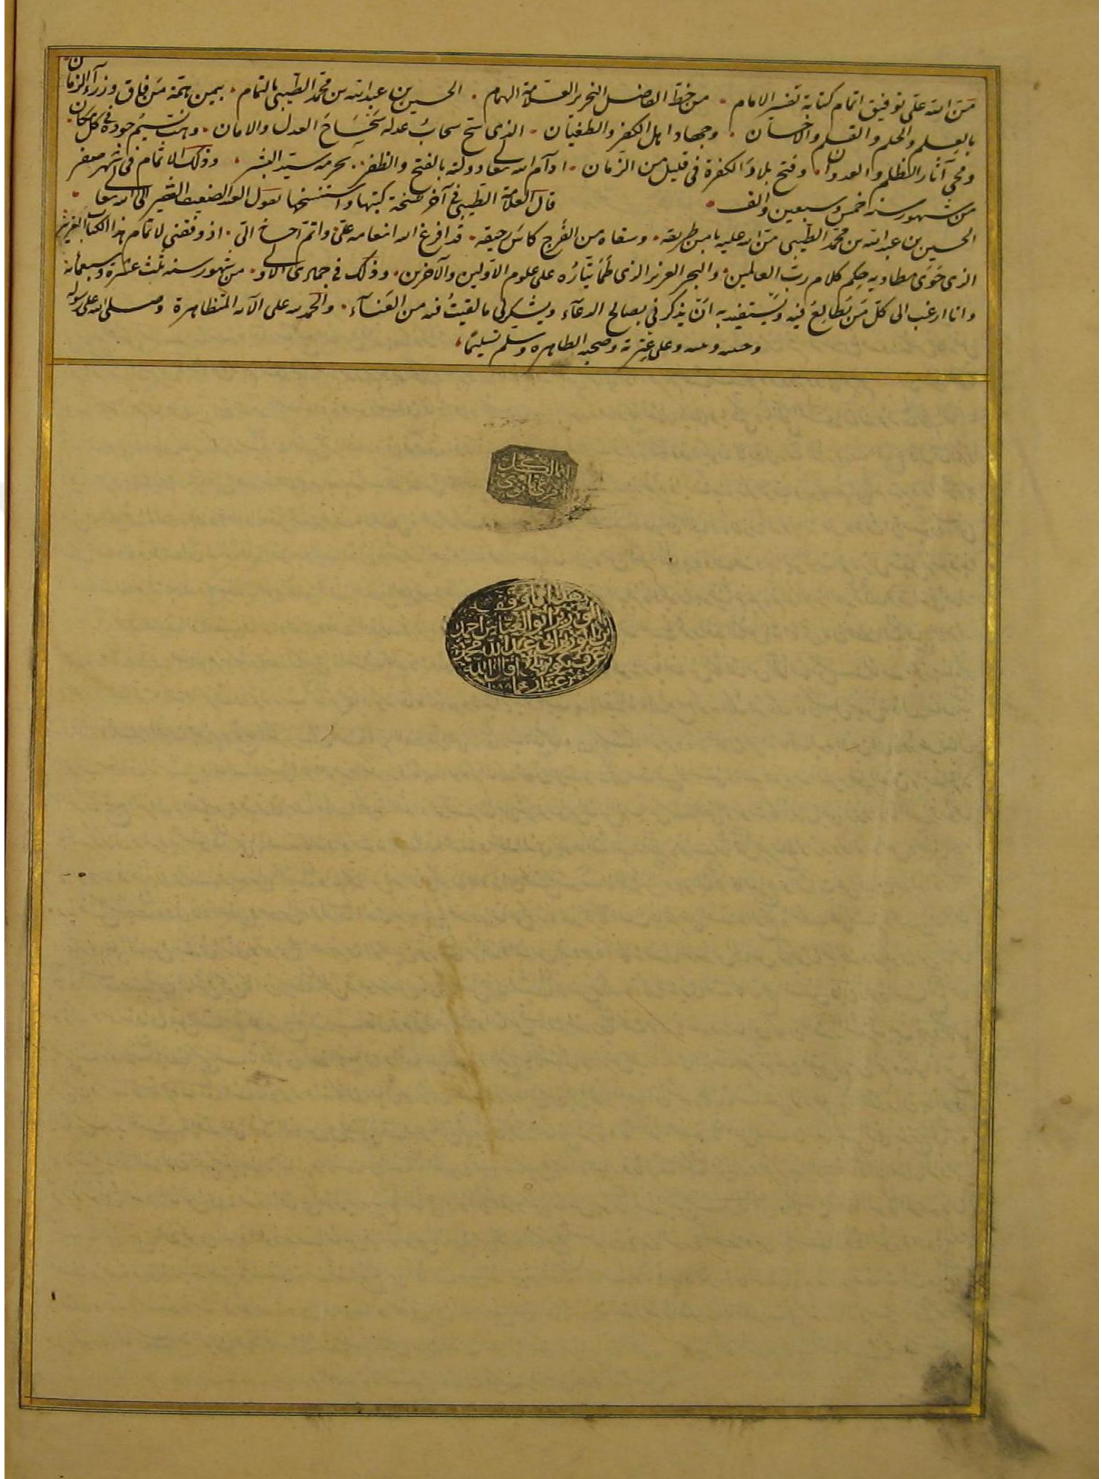 منّ الله علىّ توفيق اتمام كتابة تفسير الامام من خطّ الفاضل النحرير العلّامة الهمام الحسين بن عبد الله بن محمّد الطيبي بالتمام بيمن همّة من فاق وزرآء الزمان
بالعلم والحلم والقلم والاحسان وجهاد اهل الكفر والطغيان الذى سحّ سحاب عدله العدل والامان وهبّ نسيم جوده فى كل مكان
ومحى آثار الظلم والعدوان وفتح بلاد الكفرة فى قليل من الزّمان ادام الله تعالى دولته بالفتح والظفر بحرمة سيّد البشر وذلك الاتمام فى شهر صفر
من شهور سنه خمس وسبعين والف قال العلامة الطيبى فى آخر نسخة كتبها واستنسخها يقول العبد الضعيف الفقير الى الله تعالى
الحسين بن عبد الله بن محمّد الطيبى منّ الله عليه بامن طريقه وسقاه من الفرج كاس رحيقه قد افرغ الله انعامه علىّ واتمّ احسانه الىّ اذ وفقنى لاتمام هذا الكتاب العزيز
الذى حوى مطاويه حكم كلام ربّ العالمين والبحر العزيز الذى طمّ تيّاره على علوم الاوّلين والآخرين وذلك فى جمادى الاولى من شهور سنه ثلث عشرة وسبعمائة
وانا ارغب الى كلّ من يطالع فيه ويستفيد به ان يذكرنى بصالح الدعآء ويشكر لى ما لقيت فيه من العنآء والحمد لله على آلائه المتظاهرة وصلى الله على رسوله
وعلى عترته وصحبه الطاهره وسلم تسليمًا
انما لكل
امرئ ما نوى
الوزير ابو العباس احمد
ابن الوزير ابى عبد الله محمد
عرف بكوپريلى اقال الله
عثارهما